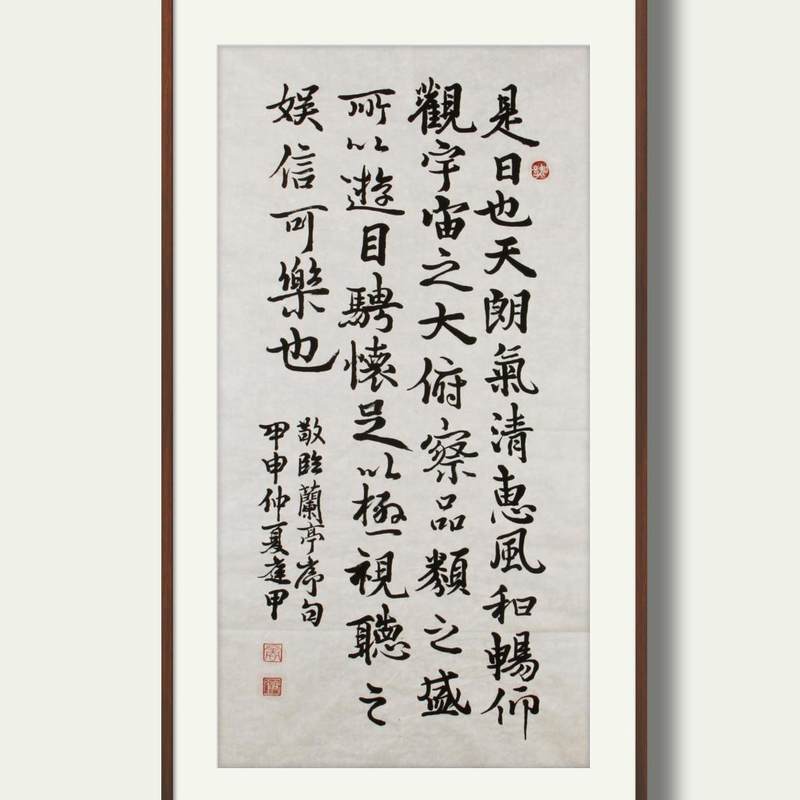 是日也天朗氣清惠風和暢仰
觀宇宙之大俯察品類之盛
所以遊目騁懷足以極視聽之
娛信可樂也
敬臨蘭亭序句
甲申仲夏莛甲